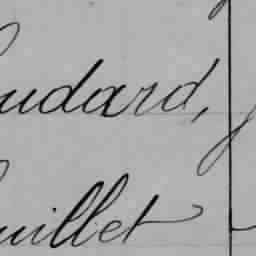 oudard,
ouillet